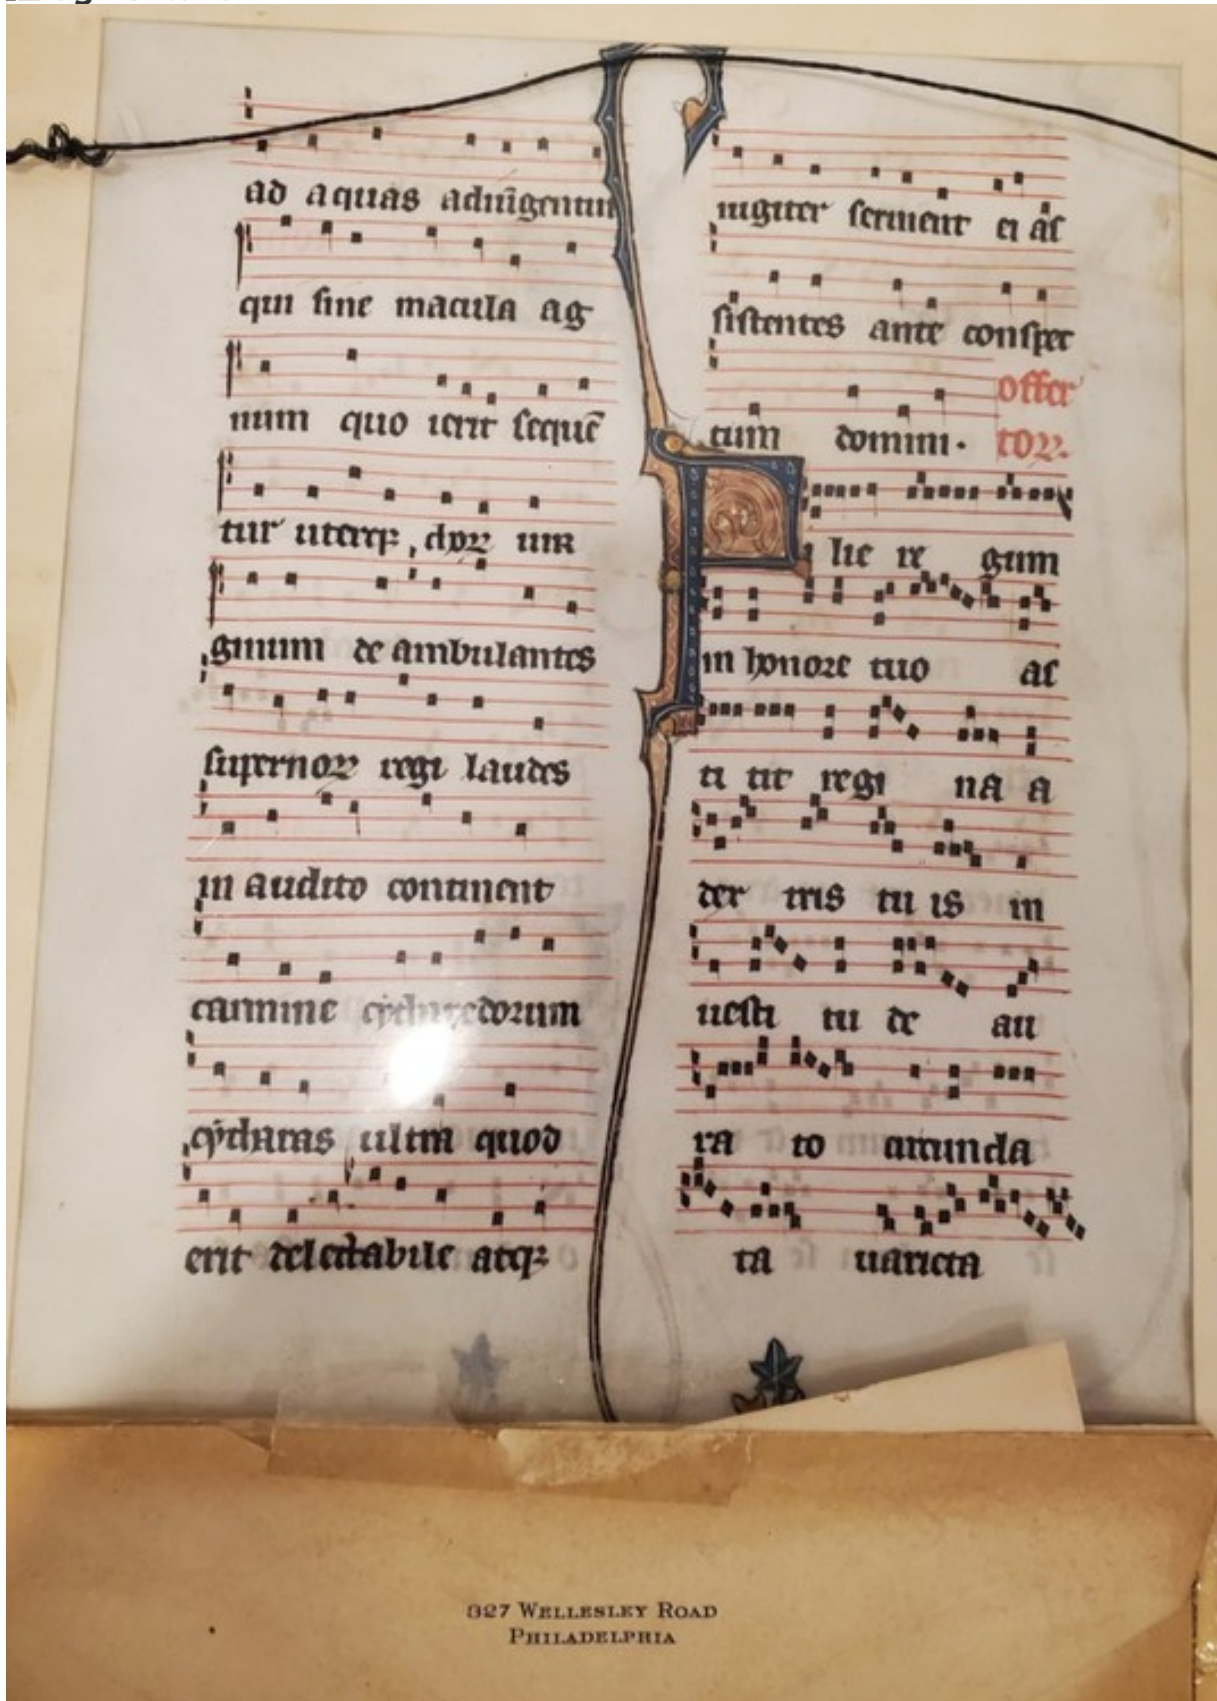 ad aquas aduīgentiū
qui sine macula ag
num quo ierit sequē
tur uterqꝫ choꝝ uir
ginum de ambulantes
supernoꝝ regi laudes
in audito continent
carmine cytharedorum
cytharas ultra quod
erit delectabile atqꝫ
iugiter seruient ei as
sistentes ante conspec
offer
tum domini. toꝝ.
Filie re gum
in honore tuo as
ti tit regi na a
dex tris tu is in
uesti tu de au
ra to circunda
ta uarieta
327 WELLESLEY ROAD
PHILADELPHIA